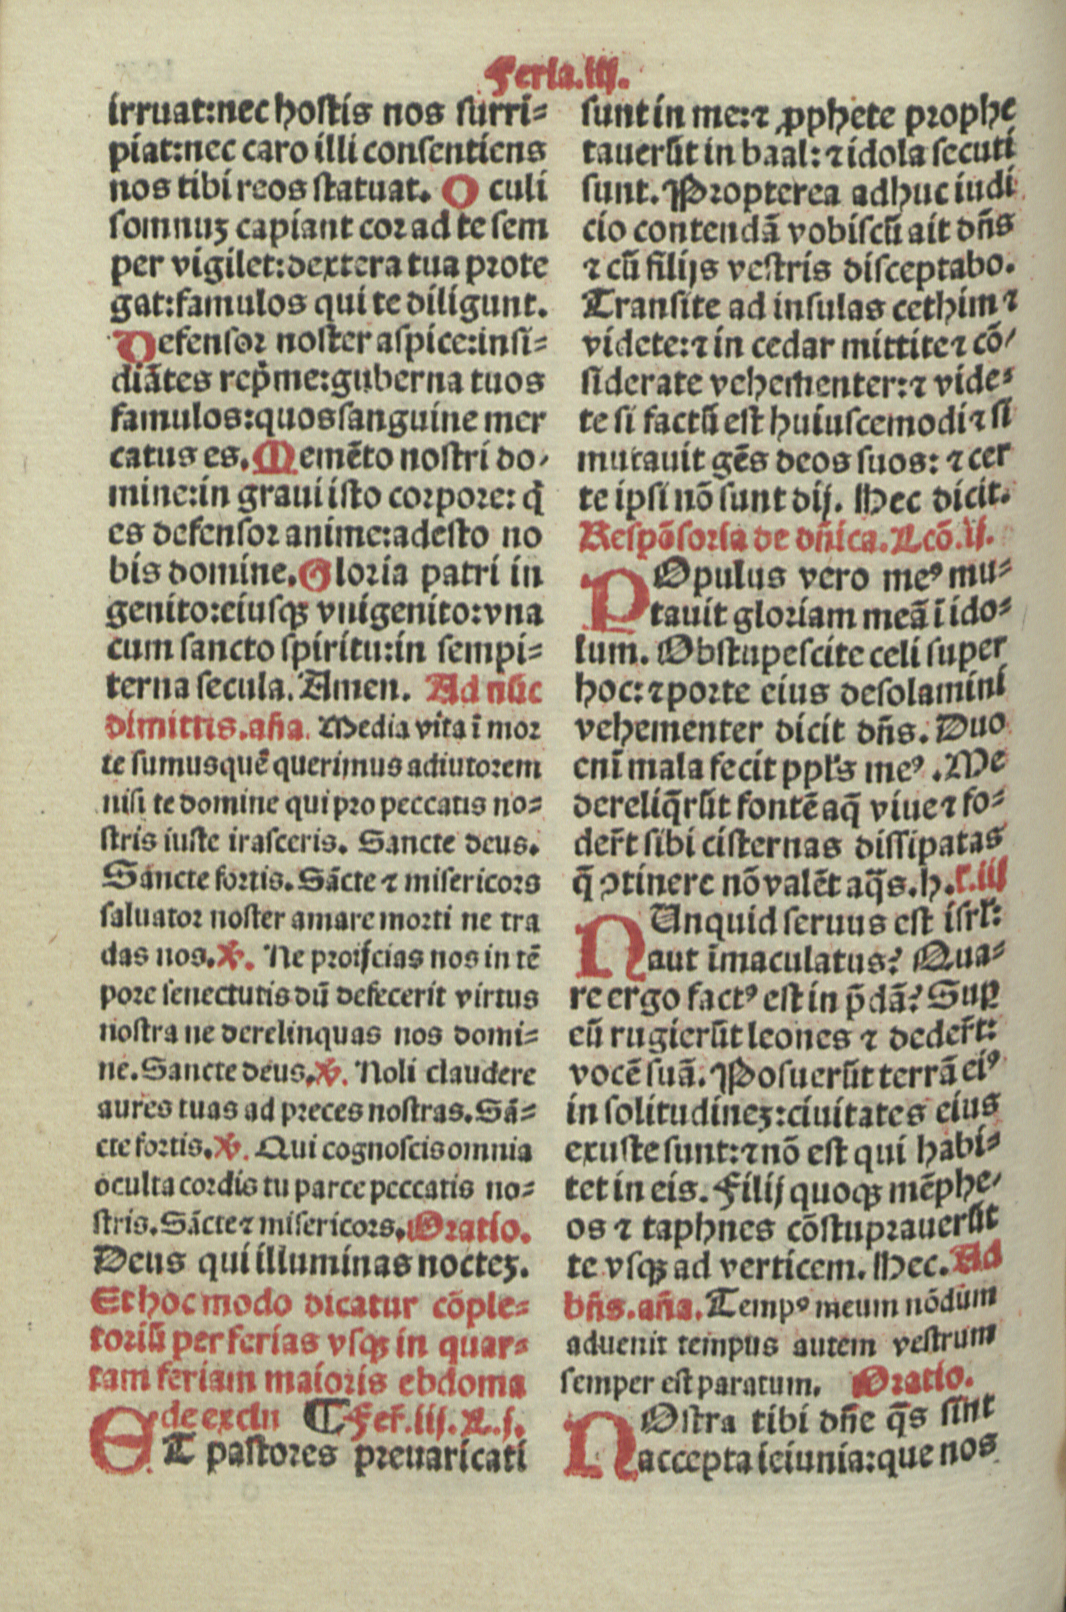 Feria.iij.
irruat:nec hostis nos surri-
piat:nec caro illi consentiens
nos tibi reos statuat. O culi
somnuʒ capiant cor ad te sem
per vigilet:dextera tua prote
gat:famulos qui te diligunt.
Defensor noster aspice:insi-
diãtes rep̃me:guberna tuos
famulos:quos sanguine mer
catus es. Memẽto nostri do-
mine:in graui isto corpore: q̃
es defensor anime:adesto no
bis domine. Gloria patri in
genito:eiusqꝫ vnigenito:vna
cum sancto spiritu:in sempi-
terna secula. Amen. Ad nũc
dimittis.aña. Media vita ĩ mor
te sumus quẽ querimus adiutorem
nisi te domine qui pro peccatis no-
stris iuste irasceris. Sancte deus.
Sancte fortis. Sãcte ⁊ misericors
saluator noster amare morti ne tra
das nos. ℣. Ne proijcias nos in tẽ
pore senectutis dũ defecerit virtus
nostra ne derelinquas nos domi-
ne. Sancte deus. ℣. Noli claudere
aures tuas ad preces nostras. Sã-
cte fortis. ℣. Qui cognoscis omnia
oculta cordis tu parce peccatis no-
stris. Sãcte ⁊ misericors. Oratio.
Deus qui illuminas nocteʒ.
Et hoc modo dicatur cõple-
toriũ per ferias vsqꝫ in quar-
tam feriam maioris ebdoma
de exclu ¶ Fer̃.iij. L.j.
ET pastores preuaricati
sunt in me:⁊ ꝓphete prophe
tauerũt in baal:⁊ idola secuti
sunt. Propterea adhuc iudi
cio contendã vobiscũ ait dñs
⁊ cũ filijs vestris disceptabo.
Transite ad insulas cethim ⁊
videte:⁊ in cedar mittite ⁊ cõ-
siderate vehementer:⁊ vide-
te si factũ est huiuscemodi ⁊ si
mutauit gẽs deos suos: ⁊ cer
te ipsi nõ sunt dij. Hec dicit.
Respõsoria de dñica. Lcõ.ij.
POpulus vero meꝰ mu-
tauit gloriam meã ĩ ido-
lum. Obstupescite celi super
hoc:⁊ porte eius desolamini
vehementer dicit dñs. Duo
enĩ mala fecit ppl's meꝰ. Me
dereliq̃rũt fontẽ aq̃ viue ⁊ fo-
der̃t sibi cisternas dissipatas
q̃ ꝯtinere nõ valẽt aq̃s. h. l.iij
NUnquid seruus est isrl':
aut ĩmaculatus? Qua-
re ergo factꝰ est in p̃dã? Suꝑ
eũ rugierũt leones ⁊ deder̃t:
vocẽ suã. Posuerũt terrã eiꝰ
in solitudineʒ:ciuitates eius
exuste sunt:⁊ nõ est qui habi-
tet in eis. Filij quoqꝫ mẽphe-
os ⁊ taphnes cõstuprauerũt
te vsqꝫ ad verticem. Hec. Ad
bñs.aña. Tempꝰ meum nõdum
aduenit tempus autem vestrum
semper est paratum. Oratio.
NOstra tibi dñe q̃s sint
accepta ieiunia:que nos